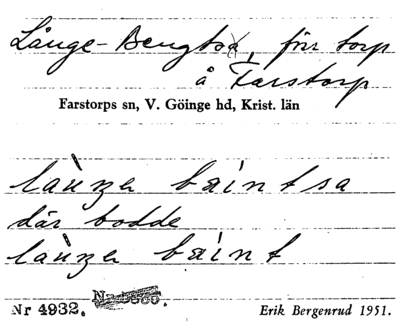 Långe-Bengtsa, förr torp
å Farstorp
Farstorps sn, V. Göinge hd, Krist. län
bæint sa
där bodde
bæint
Nr 4932.
Erik Bergenrud 1951.